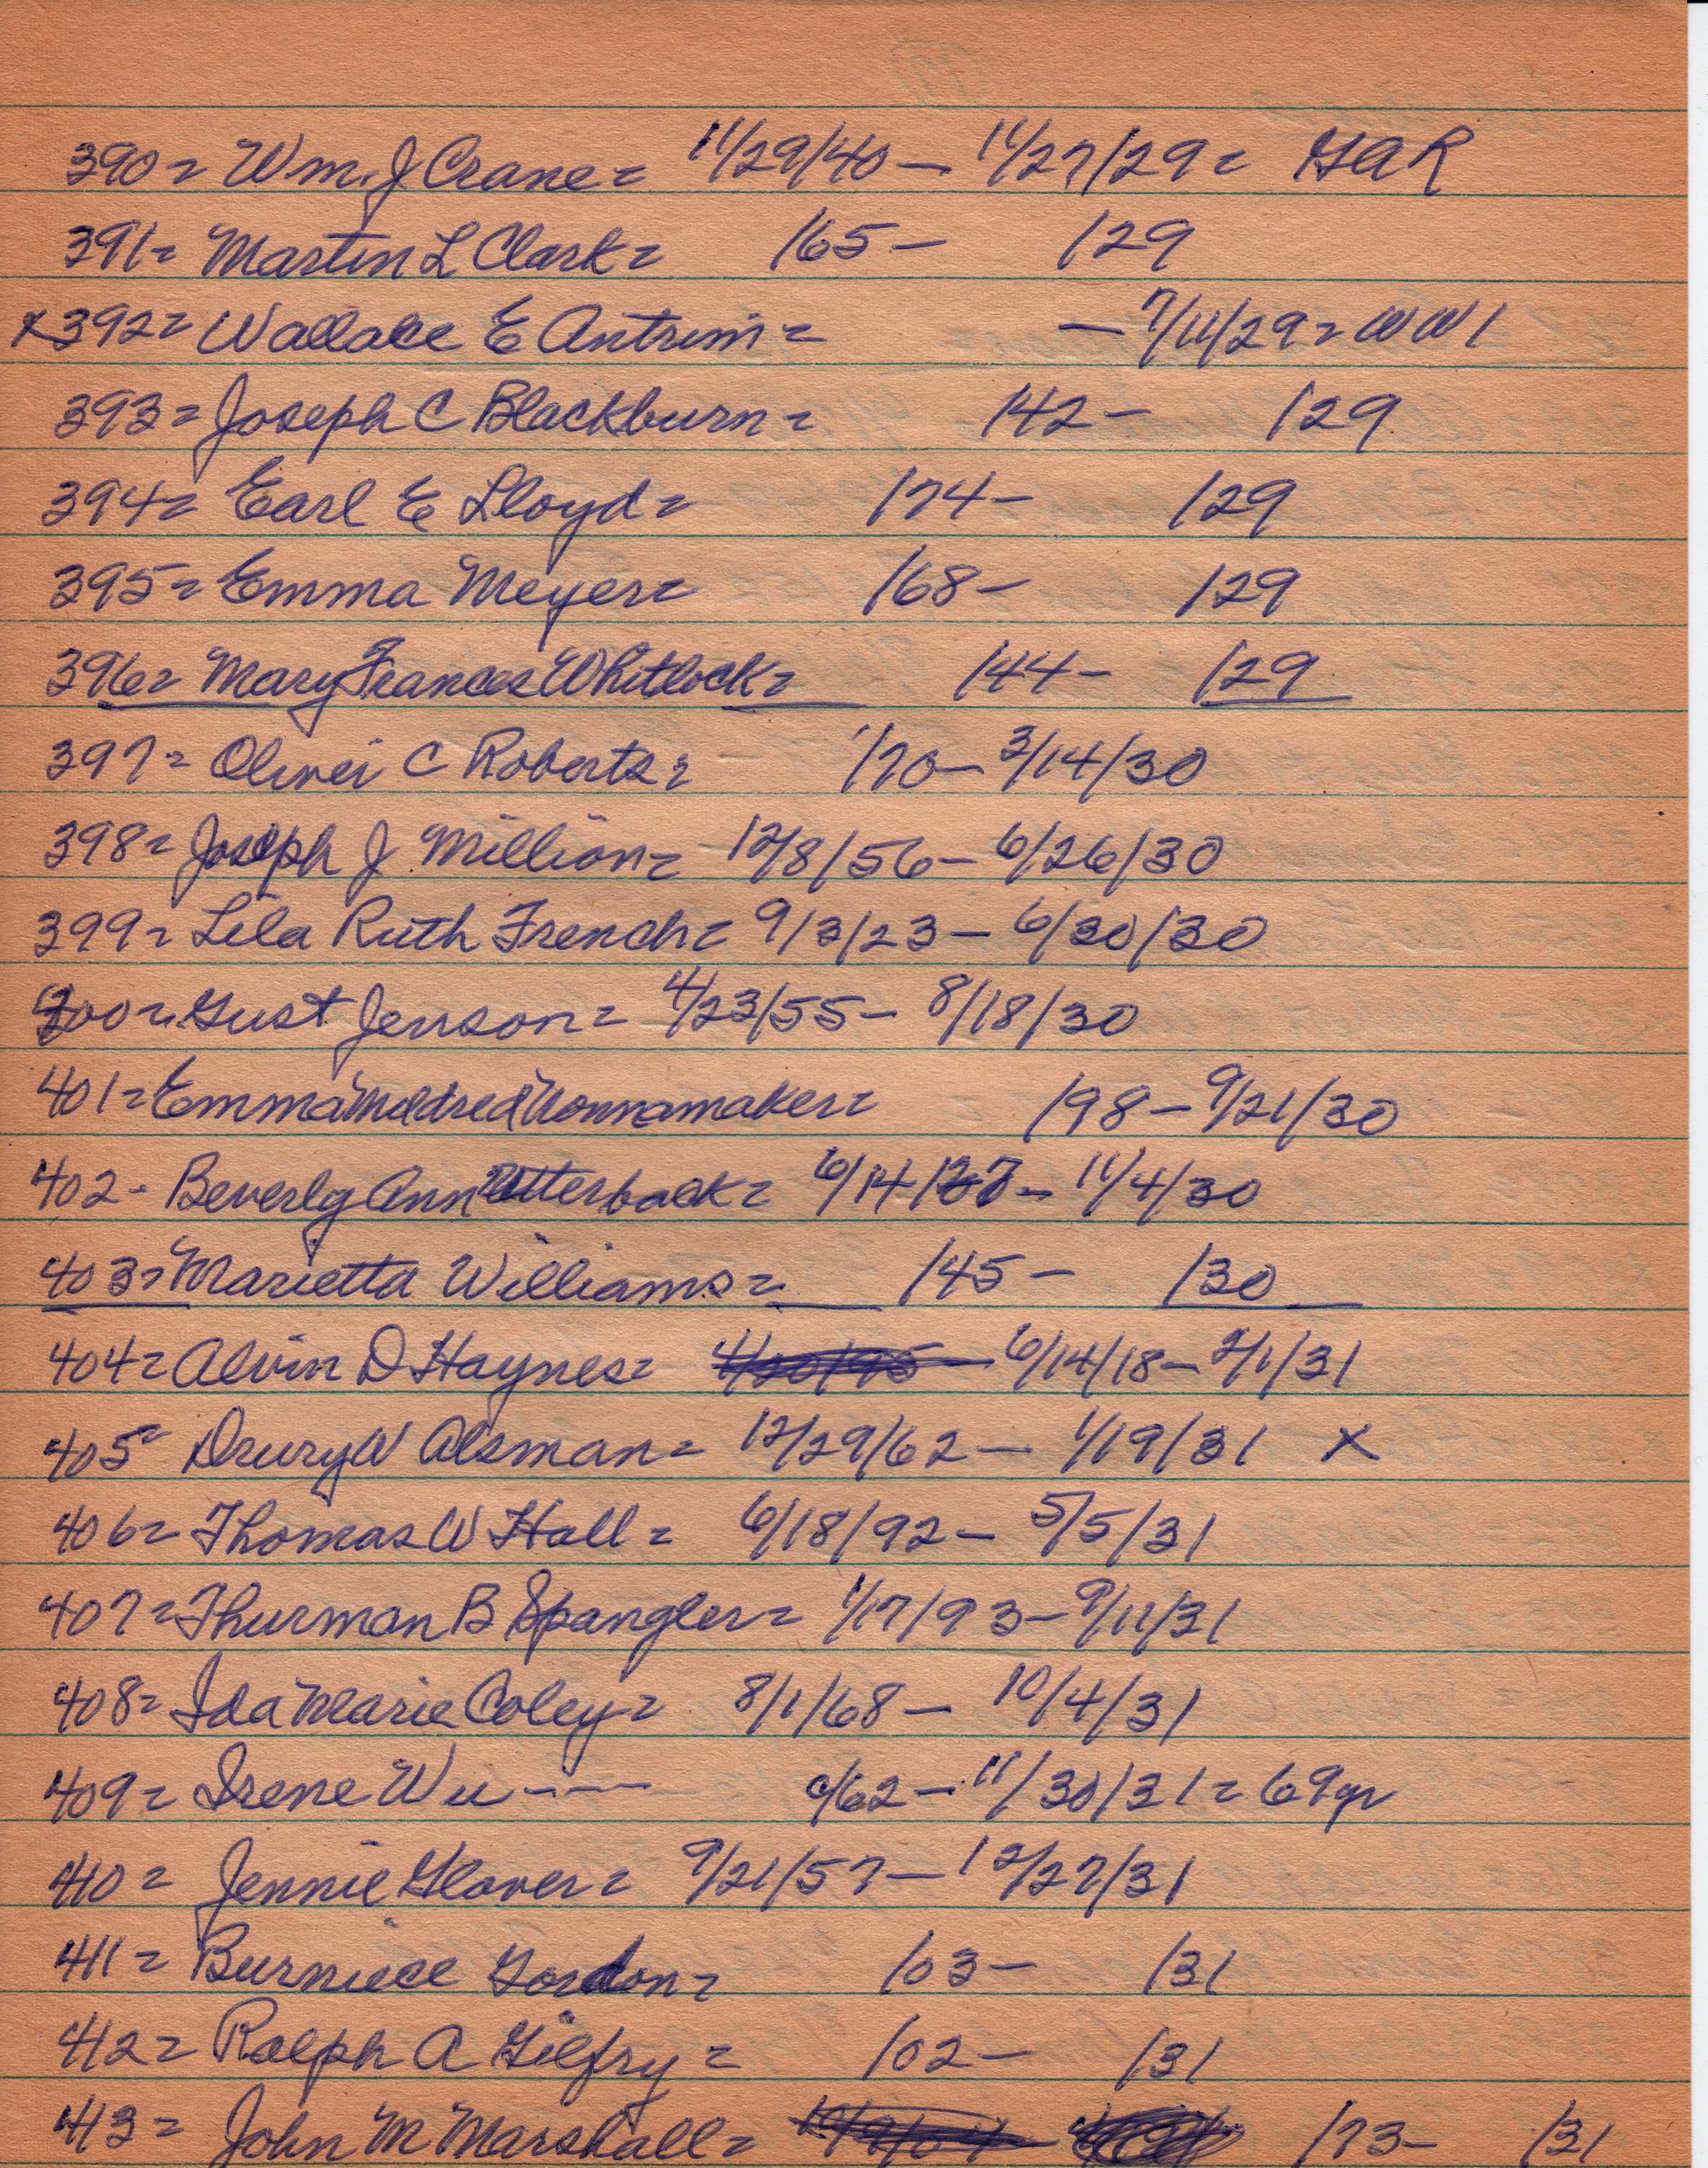 390= Wm. J Crane= 11/29/40— 11/27/29= GAR
391= Martin L Clark= /65— /29
x392= Wallace E Antrim= —7/11/29= WW1
393= Joseph C Blackburn= /42— /29
394= Earl E Lloyd= /74— /29
395= Emma Meyer= /68— /29
396= Mary Frances Whitlock= /44— /29
397= Oliver C Roberts= /70— 3/14/30
398= Joseph J Million= 12/8/56— 6/26/30
399= Lela Ruth French= 9/3/23— 6/30/30
400= Gust Jenson= 4/23/55— 8/18/30
401= Emma Mildred Wonnamaker= /98— 9/21/30
402- Beverly Ann Utterback= 6/14/27— 11/4/30
403= Marietta Williams= /45— /30
404= Alvin D Haynes= 6/14/18— 2/1/31
405= Drury W Alsman= 12/29/62— 1/19/31 X
406= Thomas W Hall= 6/18/92— 5/5/31
407= Thurman B Spangler= 1/17/93— 9/11/31
408= Ida Marie Coley= 8/1/68— 10/4/31
409= Irene Wu---- c/62— 11/30/31= 69yr
410= Jennie Glover= 9/21/57— 12/27/31
411= Burniece Gordon= /03— /31
412= Ralph A Gilfry= /02— /31
413= John M Marshall= /73— /31